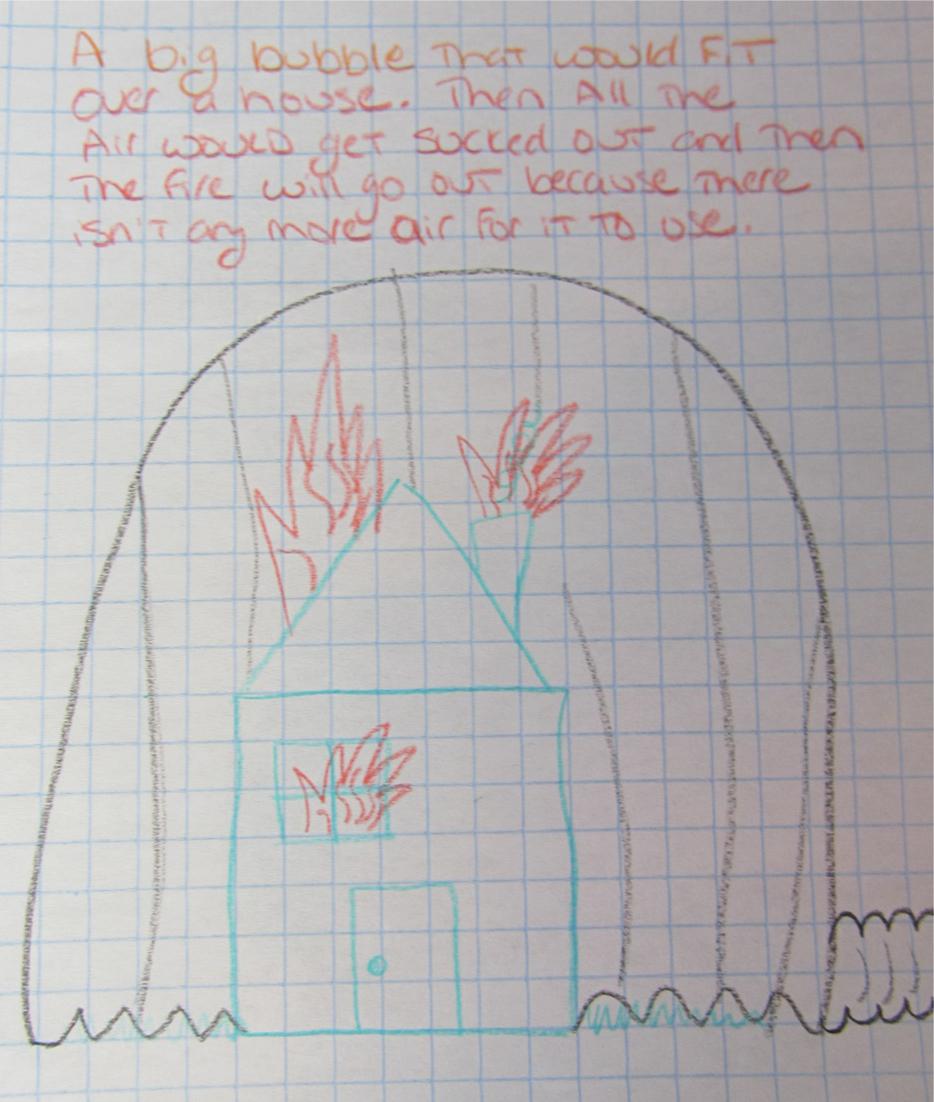 A big bubble that would fit
over a house. Then All the
Air would get sucked out and then
the fire will go out because there
isn't any more air for it to use.